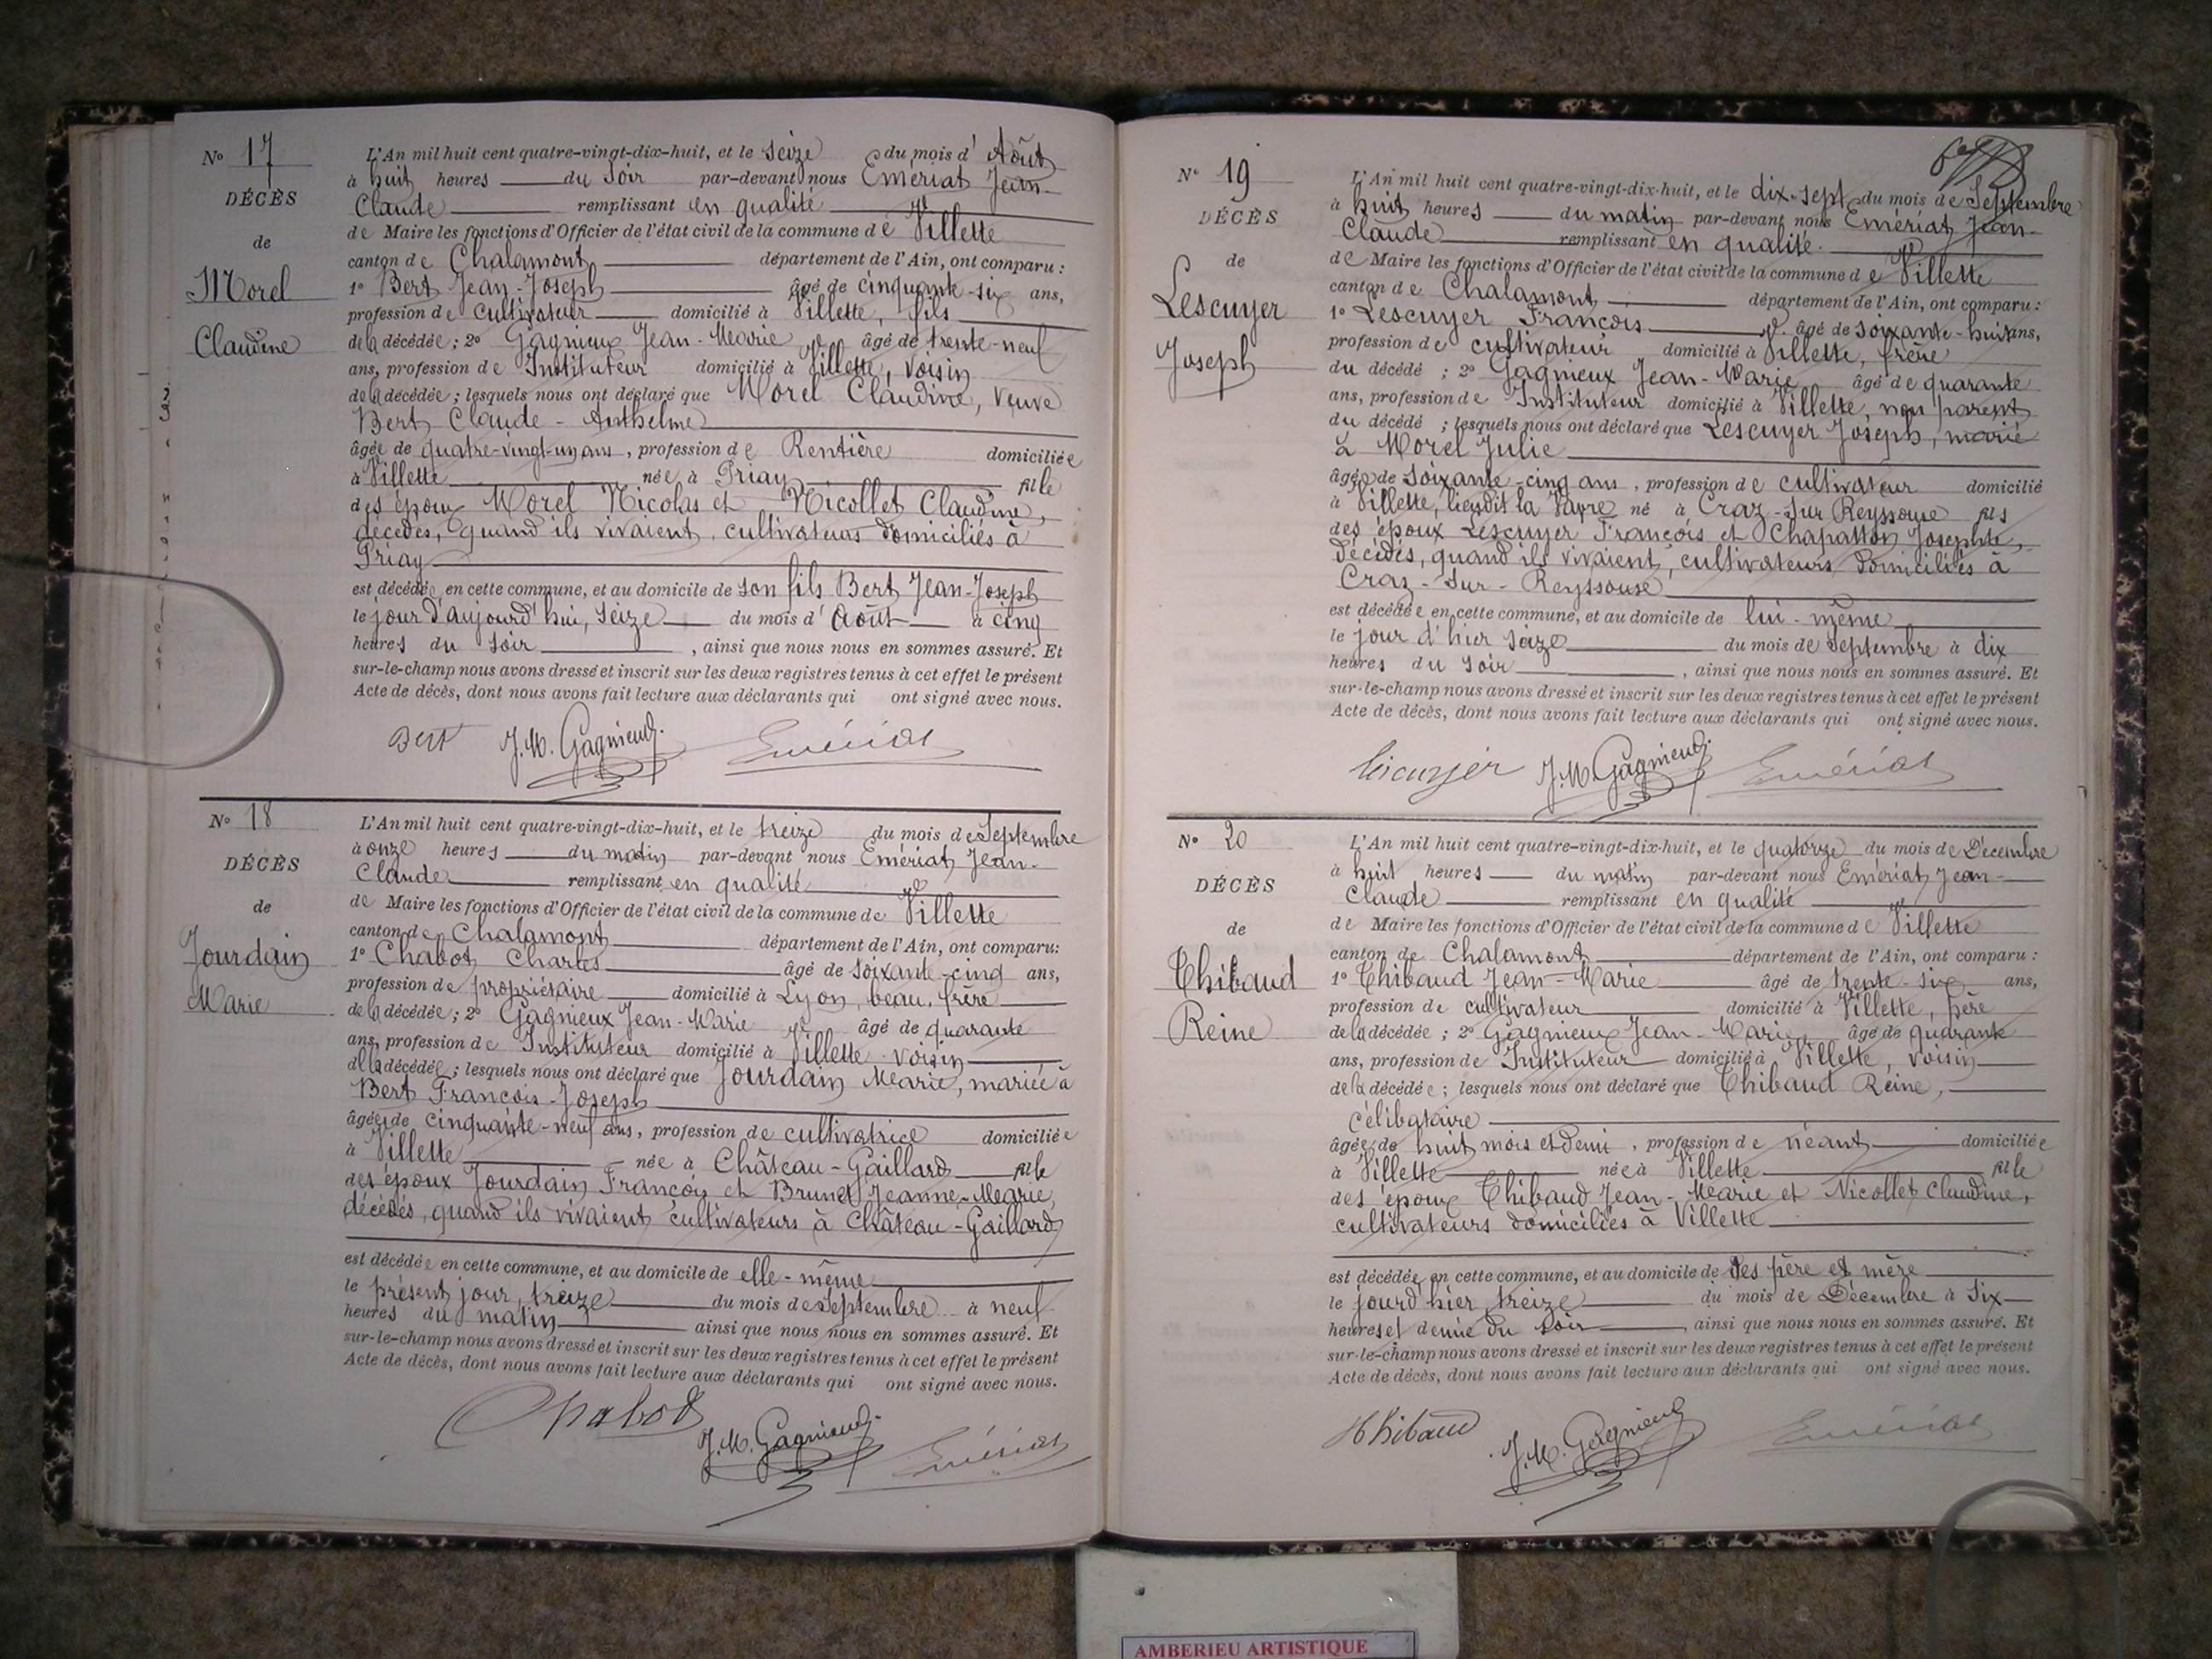 N° 17
DÉCÈS
de
Morel
Claudine
L'An mil huit cent quatre-vingt-dix-huit, et le seize du mois d'Août
à huit heures du soir par-devant nous Emériat Jean-
Claude remplissant en qualité
de Maire les fonctions d'Officier de l'état civil de la commune de Villette
canton de Chalamont département de l'Ain, ont comparu :
1° Bert Jean-Joseph âgé de cinquante-six ans,
profession de cultivateur domicilié à Villette, fils
de la décédée ; 2° Gagnieux Jean-Marie âgé de trente-neuf
ans, profession de Instituteur domicilié à Villette, voisin
de la décédée ; lesquels nous ont déclaré que Morel Claudine, veuve
Bert Claude-Anthelme
âgée de quatre-vingt-un ans, profession de Rentière domiciliée
à Villette née à Priay fille
des époux Morel Nicolas et Nicollet Claudine,
décédés, quand ils vivaient, cultivateurs domiciliés à
Priay
est décédée en cette commune, et au domicile de son fils Bert Jean-Joseph
le jour d'aujourd'hui, seize du mois d'Août à cinq
heures du soir, ainsi que nous nous en sommes assuré. Et
sur-le-champ nous avons dressé et inscrit sur les deux registres tenus à cet effet le présent
Acte de décès, dont nous avons fait lecture aux déclarants qui ont signé avec nous.
Bert J.M. Gagnieux Emériat
N° 18
DÉCÈS
de
Jourdain
Marie
L'An mil huit cent quatre-vingt-dix-huit, et le treize du mois de Septembre
à onze heures du matin par-devant nous Emériat Jean-
Claude remplissant en qualité
de Maire les fonctions d'Officier de l'état civil de la commune de Villette
canton de Chalamont département de l'Ain, ont comparu:
1° Chabot Charles âgé de soixante-cinq ans,
profession de propriétaire domicilié à Lyon, beau-frère
de la décédée; 2° Gagnieux Jean-Marie âgé de quarante
ans, profession de Instituteur domicilié à Villette voisin
de la décédée ; lesquels nous ont déclaré que Jourdain Marie, mariée à
Bert François-Joseph
âgée de cinquante-neuf ans, profession de cultivatrice domiciliée
à Villette née à Château-Gaillard fille
des époux Jourdain François et Brunet Jeanne-Marie,
décédés, quand ils vivaient cultivateurs à Château-Gaillard
est décédée en cette commune, et au domicile de elle-même
le présent jour, treize du mois de septembre à neuf
heures du matin ainsi que nous nous en sommes assuré. Et
sur-le-champ nous avons dressé et inscrit sur les deux registres tenus à cet effet le présent
Acte de décès, dont nous avons fait lecture aux déclarants qui ont signé avec nous.
Chabot J.M. Gagnieux Emériat
N° 19
DÉCÈS
de
Lescuyer
Joseph
L'An mil huit cent quatre-vingt-dix-huit, et le dix-sept du mois de Septembre
à huit heures du matin par-devant nous Emériat Jean-
Claude remplissant en qualité
de Maire les fonctions d'Officier de l'état civil de la commune de Villette
canton de Chalamont département de l'Ain, ont comparu :
1° Lescuyer François âgé de soixante-huit ans,
profession de cultivateur domicilié à Villette, frère
du décédé ; 2° Gagnieux Jean-Marie âgé de quarante
ans, profession de Instituteur domicilié à Villette, non parent
du décédé ; lesquels nous ont déclaré que Lescuyer Joseph, marié
à Morel Julie
âgé de soixante-cinq ans, profession de cultivateur domicilié
à Villette, lieudit la né à Craz-sur Reyssouse fils
des époux Lescuyer François et Chapatton Josephte,
décédés, quand ils vivaient, cultivateurs domiciliés à
Craz-sur-Reyssouse
est décédé en cette commune, et au domicile de lui-même
le jour d'hier seize du mois de septembre à dix
heures du soir, ainsi que nous nous en sommes assuré. Et
sur-le-champ nous avons dressé et inscrit sur les deux registres tenus à cet effet le présent
Acte de décès, dont nous avons fait lecture aux déclarants qui ont signé avec nous.
Lescuyer J.M. Gagnieux Emériat
N° 20
DÉCÈS
de
Thibaud
Reine
L'An mil huit cent quatre-vingt-dix-huit, et le quatorze du mois de Décembre
à huit heures du matin par-devant nous Emériat Jean-
Claude remplissant en qualité
de Maire les fonctions d'Officier de l'état civil de la commune de Villette
canton de Chalamont département de l'Ain, ont comparu :
1° Thibaud Jean-Marie âgé de trente-six ans,
profession de cultivateur domicilié à Villette, père
de la décédée ; 2° Gagnieux Jean-Marie âgé de quarante
ans, profession de Instituteur domicilié à Villette, voisin
de la décédée ; lesquels nous ont déclaré que Thibaud Reine,
célibataire
âgée de huit mois et demi, profession de néant domiciliée
à Villette née à Villette fille
des époux Thibaud Jean-Marie et Nicollet Claudine,
cultivateurs domiciliés à Villette
est décédée en cette commune, et au domicile de ses père et mère
le jour d'hier, treize du mois de Décembre à six
heures et demie du soir, ainsi que nous nous en sommes assuré. Et
sur-le-champ nous avons dressé et inscrit sur les deux registres tenus à cet effet le présent
Acte de décès, dont nous avons fait lecture aux déclarants qui ont signé avec nous.
Thibaud J.M. Gagnieux Emériat
AMBERIEU ARTISTIQUE